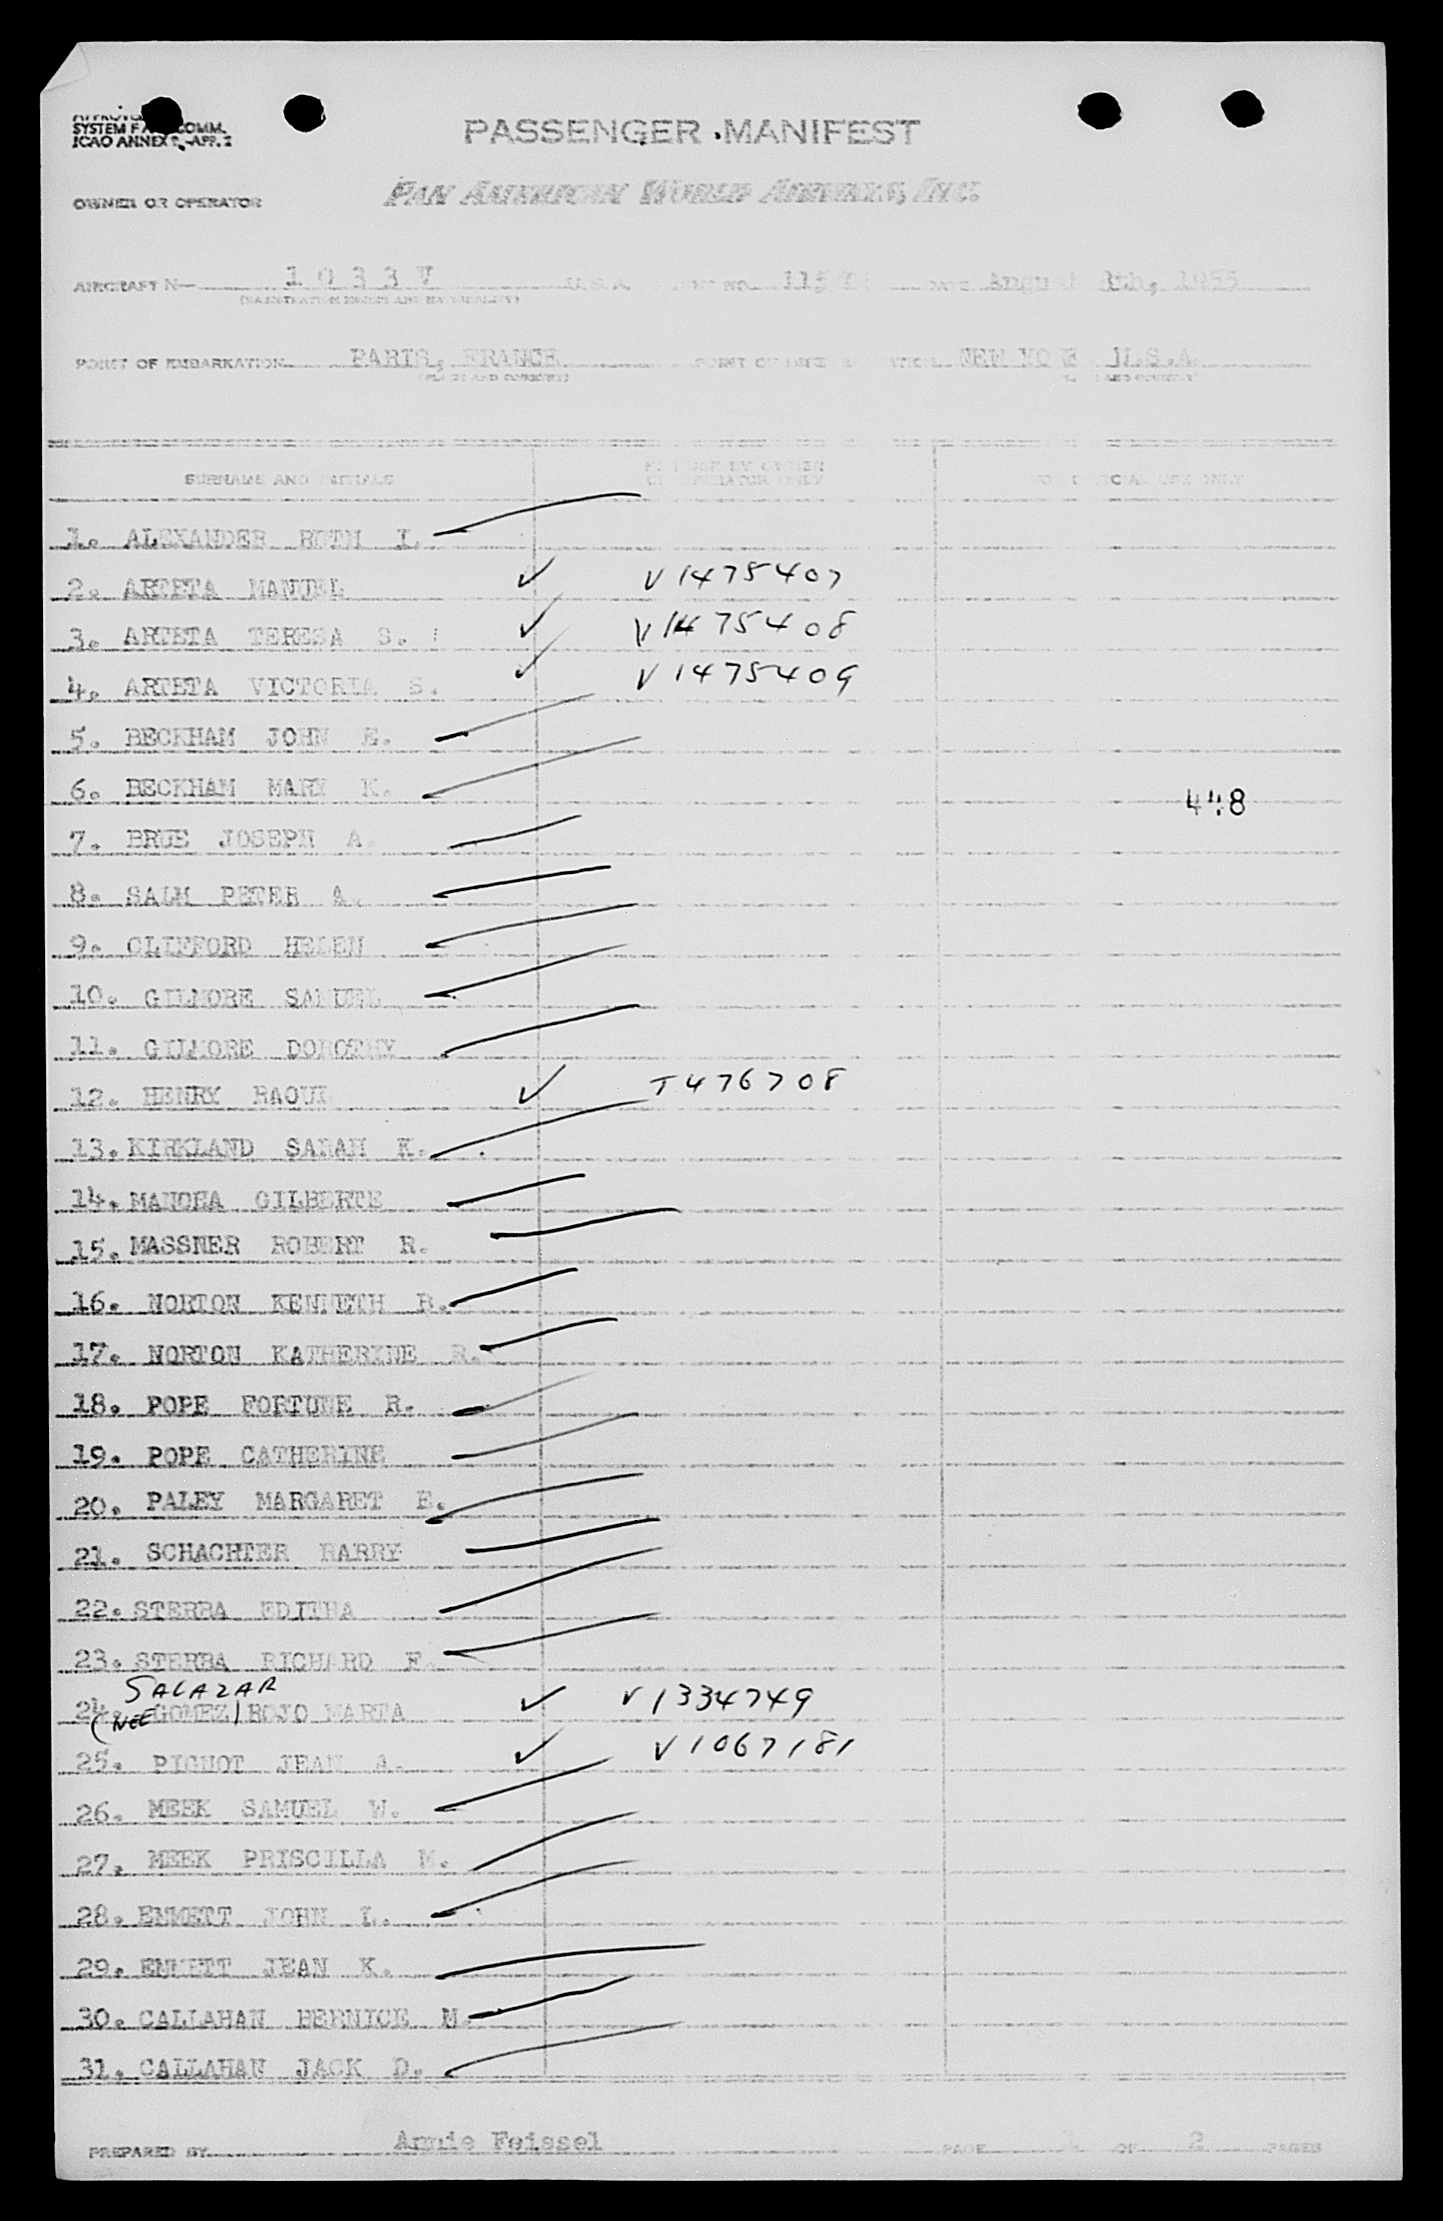 SYSTEM F COMM.
ICAO ANNEX 9, APP. 2
PASSENGER MANIFEST
OWNER OR OPERATOR
PAN AMERICAN WORLD AIRWAYS, INC.
AIRCRAFT N— 1 0 3 3 V U.S.A. 115 DATE August 8th, 1955
(REGISTRATION MARKS AND NATIONALITY)
POINT OF EMBARKATION PARIS, FRANCE POINT OF NEW YORK U.S.A.
(PLACE AND COUNTRY) AND COUNTRY)
SURNAME AND INITIALS FOR USE BY OWNER OR OPERATOR ONLY FOR OFFICIAL USE ONLY
1. ALEXANDER RUTH I.
2. ARTETA MANUEL V1475407
3. ARTETA TERESA S. V1475408
4. ARTETA VICTORIA S. V1475409
5. BECKHAM JOHN E.
6. BECKHAM MARY K.
448
7. BRUE JOSEPH A.
8. SALM PETER A.
9. CLIFFORD HELEN
10. GILMORE SAMUEL
11. GILMORE DOROTHY
12. HENRY RAOUL T476708
13. KIRKLAND SARAH K.
14. MANCHA GILBERTE
15. MASSNER ROBERT R.
16. NORTON KENNETH R.
17. NORTON KATHERINE R.
18. POPE FORTUNE R.
19. POPE CATHERINE
20. PALEY MARGARET E.
21. SCHACHTER HARRY
22. STERBA EDITHA
23. STERBA RICHARD F.
SALAZAR
24. (NEE GOMEZ) ROJO MARTA V1334749
25. PIGNOT JEAN A. V1067181
26. MEEK SAMUEL W.
27. MEEK PRISCILLA M.
28. EMMETT JOHN L.
29. EMMETT JEAN K.
30. CALLAHAN BERNICE M.
31. CALLAHAN JACK D.
PREPARED BY Annie Feissel PAGE 1 OF 2 PAGES